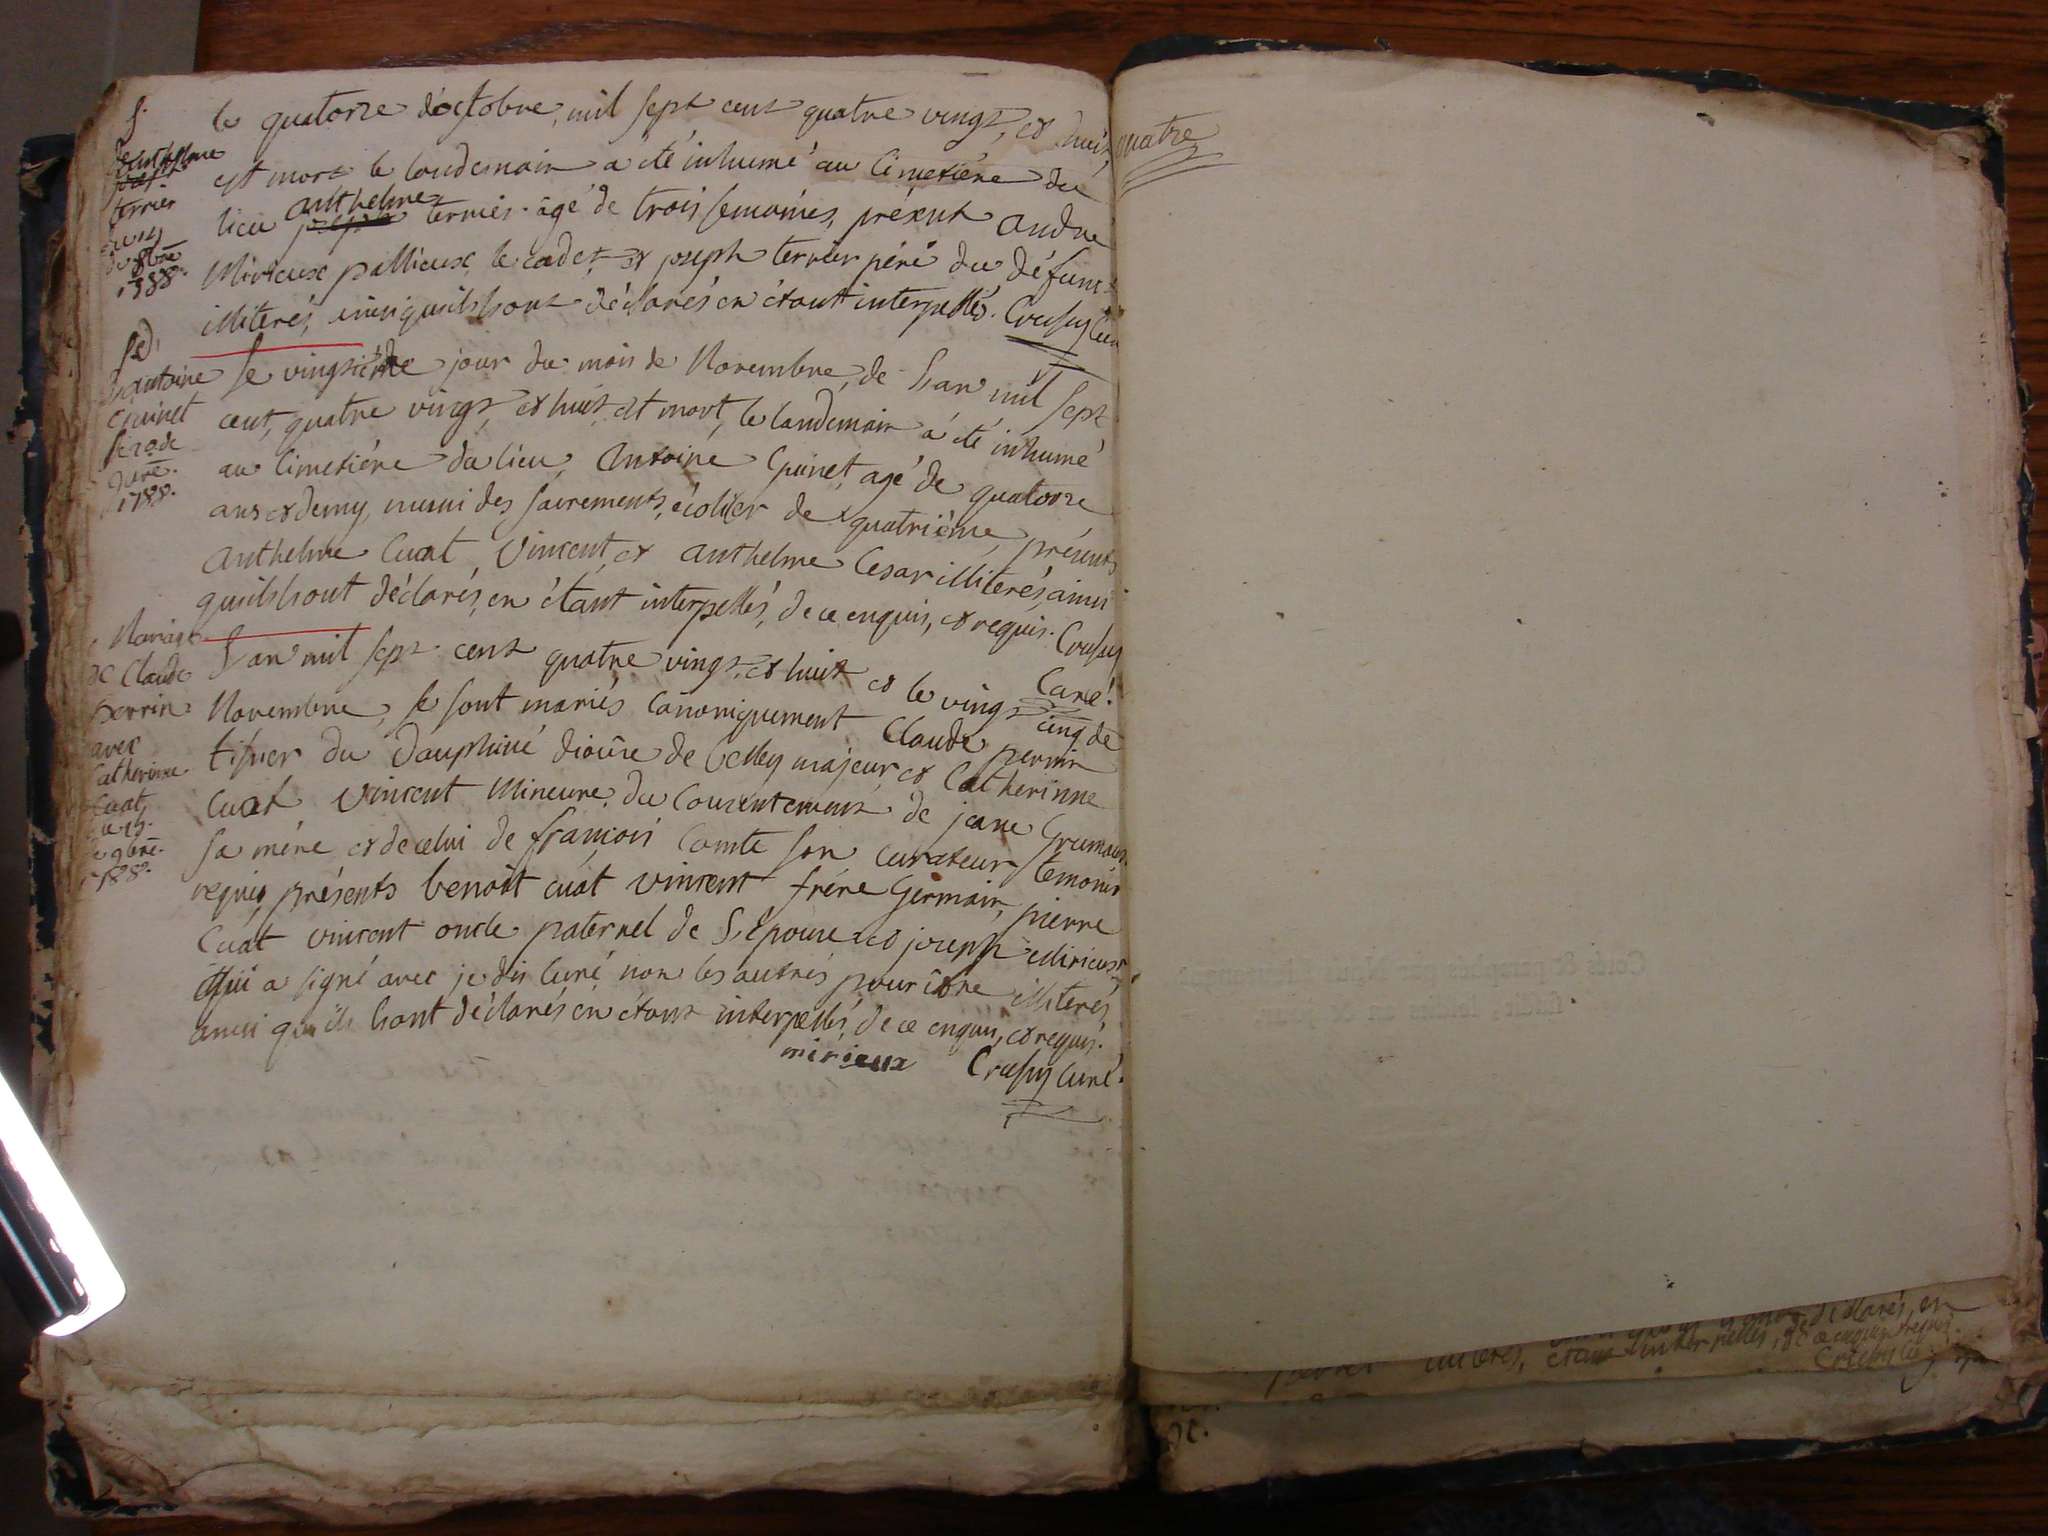 S.
d'anthelme
terrier
du 14
de 8bre
1788.
le quatorze d'octobre, mil sept cent quatre vingt, et huit,
est mort le landemain a été inhumé au Cimetiére du
lieu anthelme terrier âgé de trois semaines, présent andré
Mirieux pallieux le cadet et joseph terrier pére du défunt
illiterés, ainsi quils l'ont déclarés en étant interpellés. Crussy Curé
Sre.
d'antoine
Guinet
le 20 de
9bre.
1788.
Le vingtiéme jour du mois de Novembre, de L'an mil sept
cent, quatre vingt, et huit est mort, le landemain a été inhumé
au Cimetiére du lieu, Antoine Guinet, agé de quatorze
ans et demy, muni des sacrements, écolier de quatriéme, présents
anthelme Cuat, Vincent, et anthelme César illiterés, ainsi
quils l'ont déclarés, en étant interpellés, de ce enquis, et requis. Crussy
Curé.
Mariage
de Claude
perrin
avec
Catherinne
Cuat
du 25.
de 9bre.
1788.
L'an mil sept cent quatre vingt, et huit et le vingt cinq de
Novembre, se sont mariés Canoniquement Claude perrin
tissier du Dauphiné diocése de belley majeur, et Catherinne
Cuat Vincent Mineure, du Consentement de jeane
sa mére et de celui de françois Comte son curateur, temoins
requis, présents benoit cuat vincent frére Germain, pierre
Cuat vincent oncle paternel de L'épouse et joseph Mirieux
qui a signé avec je dis Curé, non les autrés pour être illiterés
ainsi qu'ils l'ont déclarés en étant interpellés, de ce enquis, et requis.
mirieux Crussy Curé.
quatre
déclarés, en
illiterés, étant interpellés, de ce enquis, et requis.